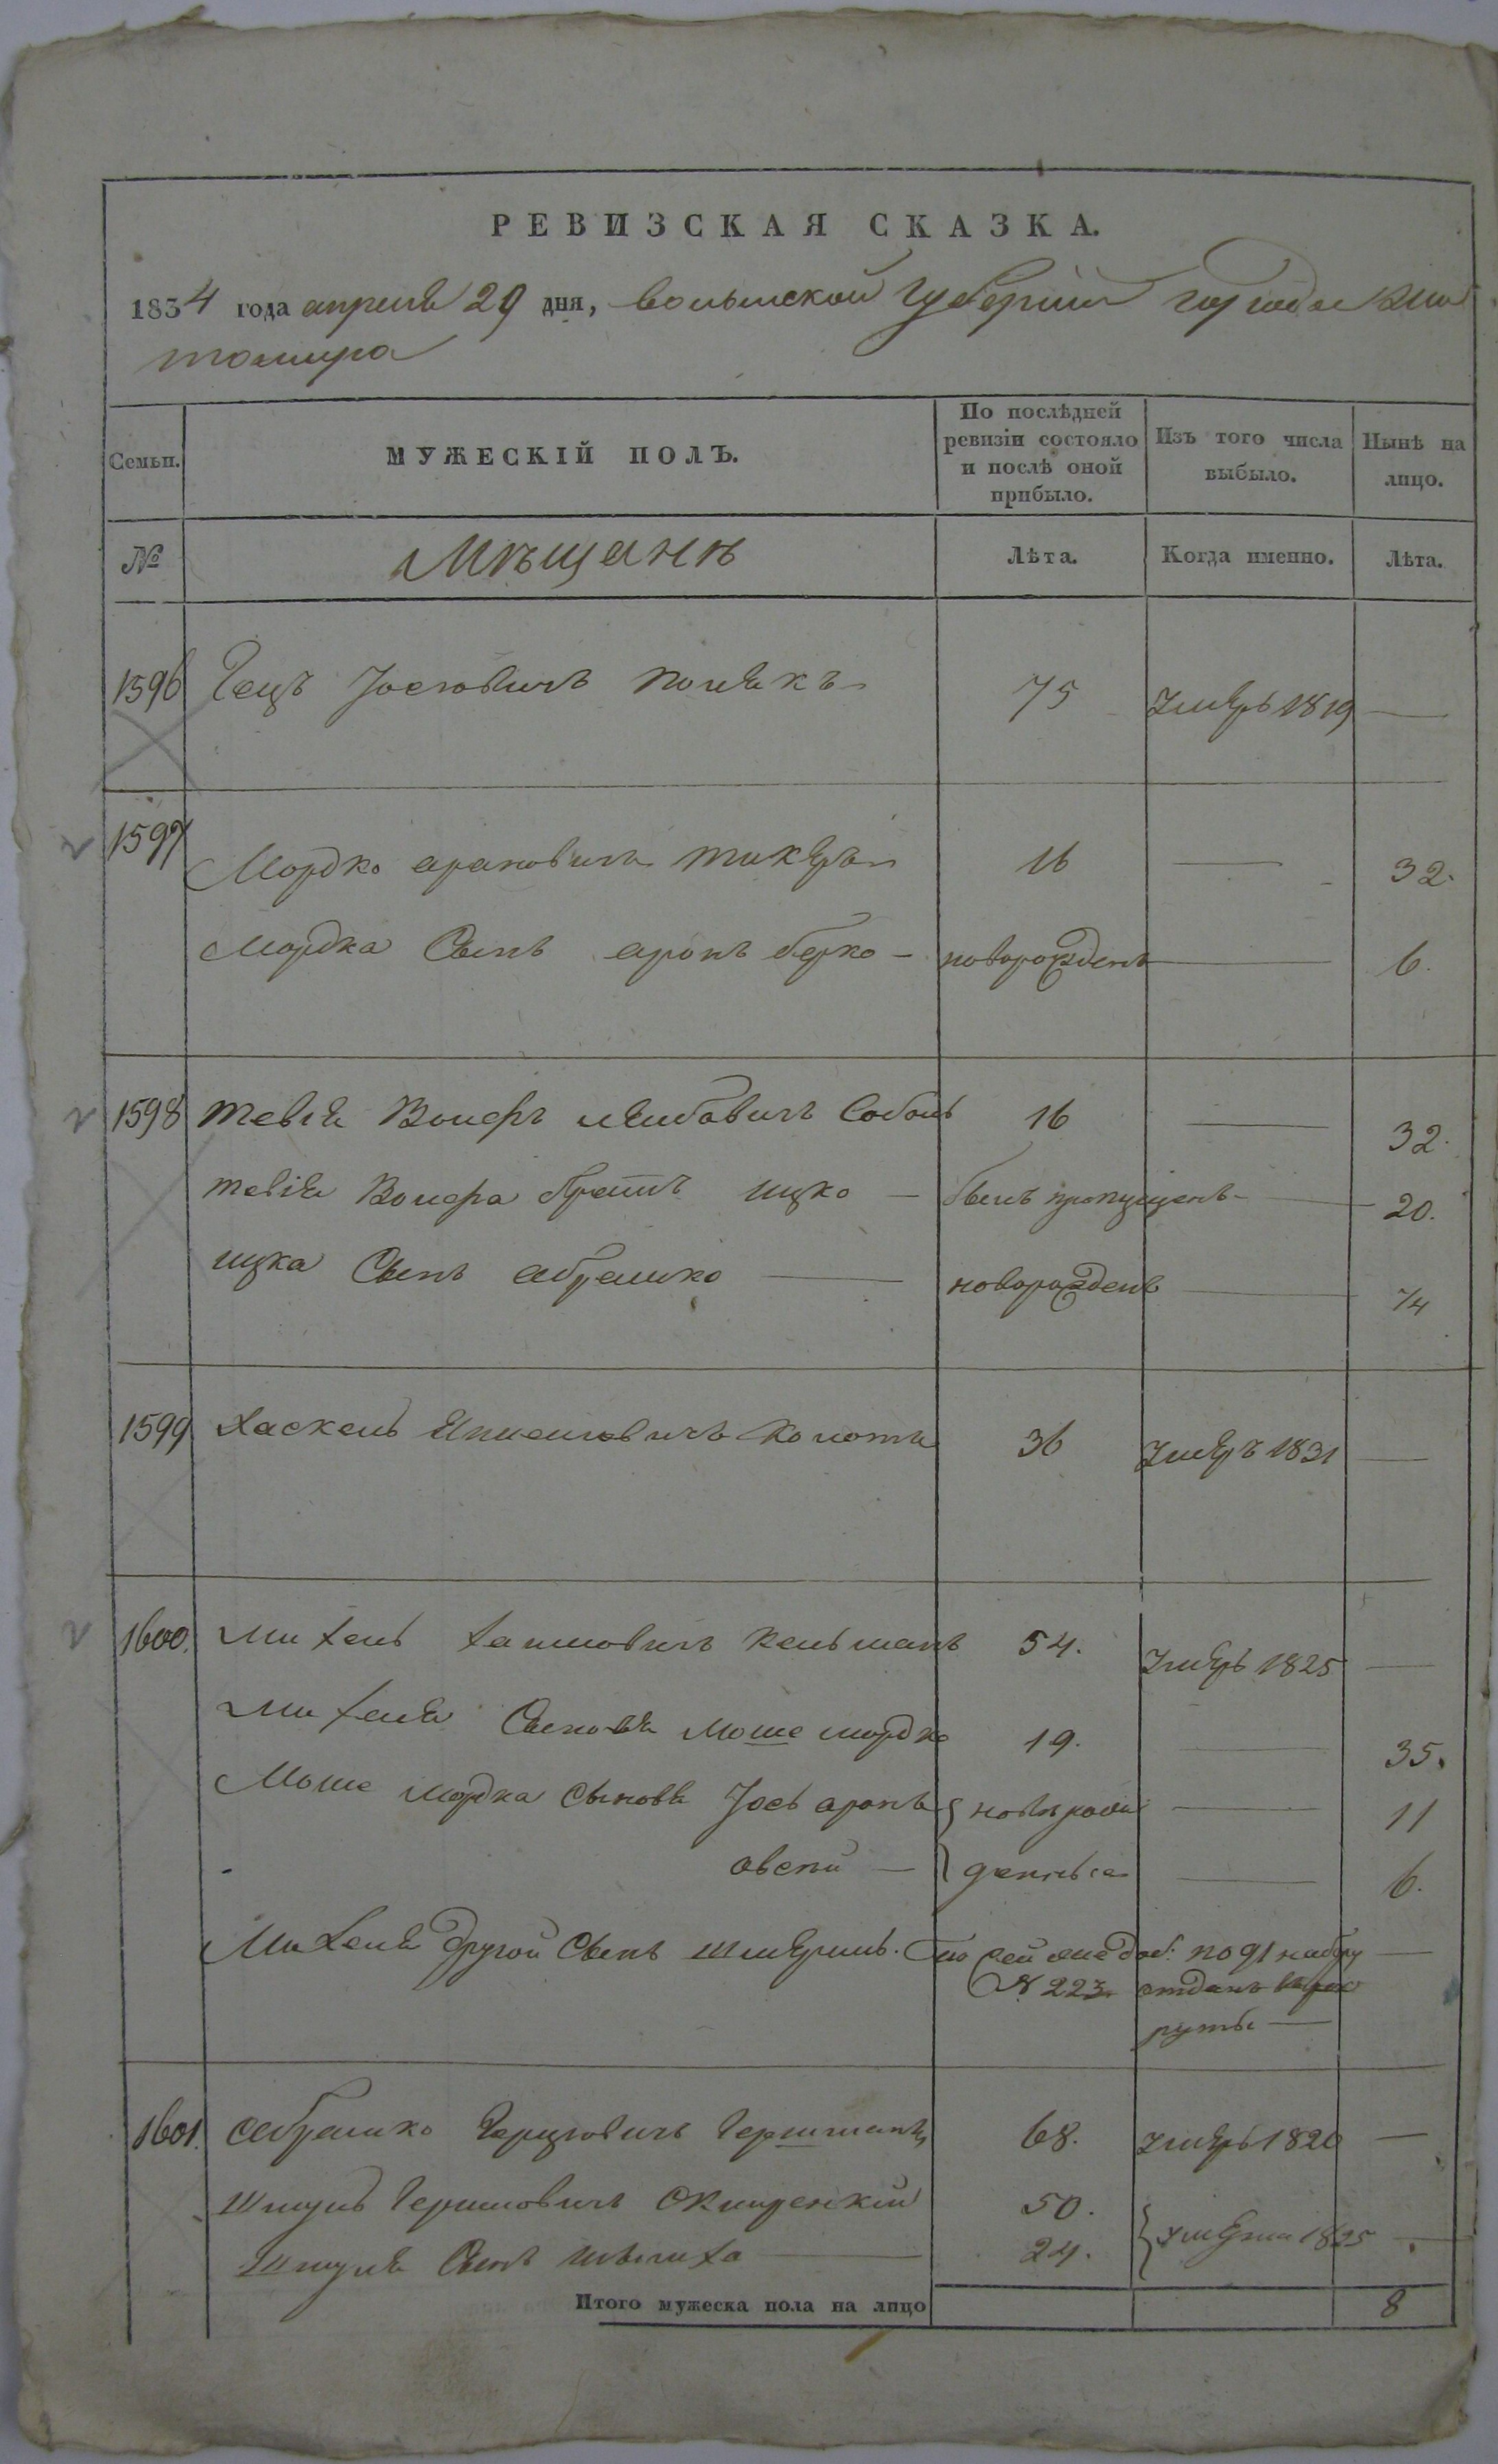 РЕВИЗСКАЯ СКАЗКА.
1834 года апреля 29 дня, волынской губернии города Жи
томира
Семьи.
МУЖЕСКІЙ ПОЛЪ.
По послѣдней ревизіи состояло и послѣ оной прибыло.
Изъ того числа выбыло.
Нынѣ на лицо.
№ Мѣщанѣ Лѣта. Когда именно. Лѣта.
1596 Герцъ Іосіовичъ Полякъ 75 Умеръ 1819 —
1597 Мордко ароновичъ 16 — 32.
Мордка Сынъ аронъ берко – новорожденъ — 6.
1598 тевія Волфъ лейбовичъ Соболь 16 — 32.
тевія Волфа братъ ицко — былъ пропущенъ — 20.
ицка Сынъ абрамко — новорожденъ — 1/4
1599 Хаскель 36 Умеръ 1831 —
1600. михель хаимовичъ Кельманъ 54. Умеръ 1825 —
михеля Сыновя Моше мордко 19. — 35.
Моше мордка сыновя Іось аронъ } новорож — 11
овсей — } денные — 6.
Михеля другой Сынъ шмерииль. по сей же доб: по 91 набору —
№ 223. отданъ в рек
руты —
1601. абрамко Герцковичъ Гершманъ 68. Умеръ 1820 —
Шмуль Гершковичъ 50. } умерли 1825 —
Шмуля Сынъ 24.
Итого мужеска пола на лицо 8